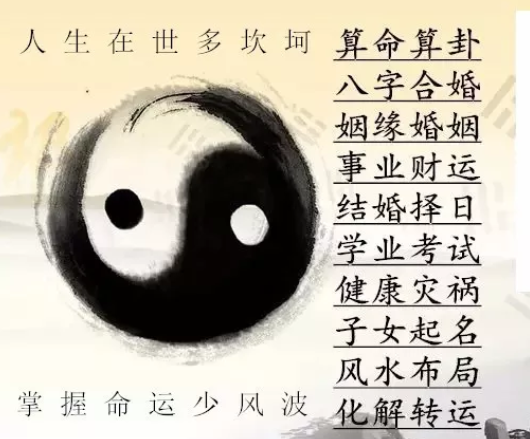 人生在世多坎坷
算命算卦
八字合婚
姻缘婚姻
事业财运
结婚择日
学业考试
健康灾祸
子女起名
风水布局
化解转运
掌握命运少风波